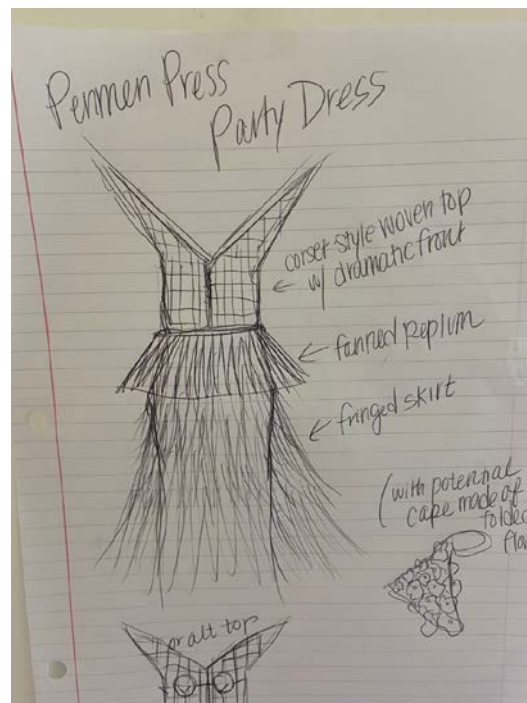 Penmen Press
Party Dress
corset style woven top
w/ dramatic front
fanned peplum
fringed skirt
(with potential
cape made of
folded
or alt top